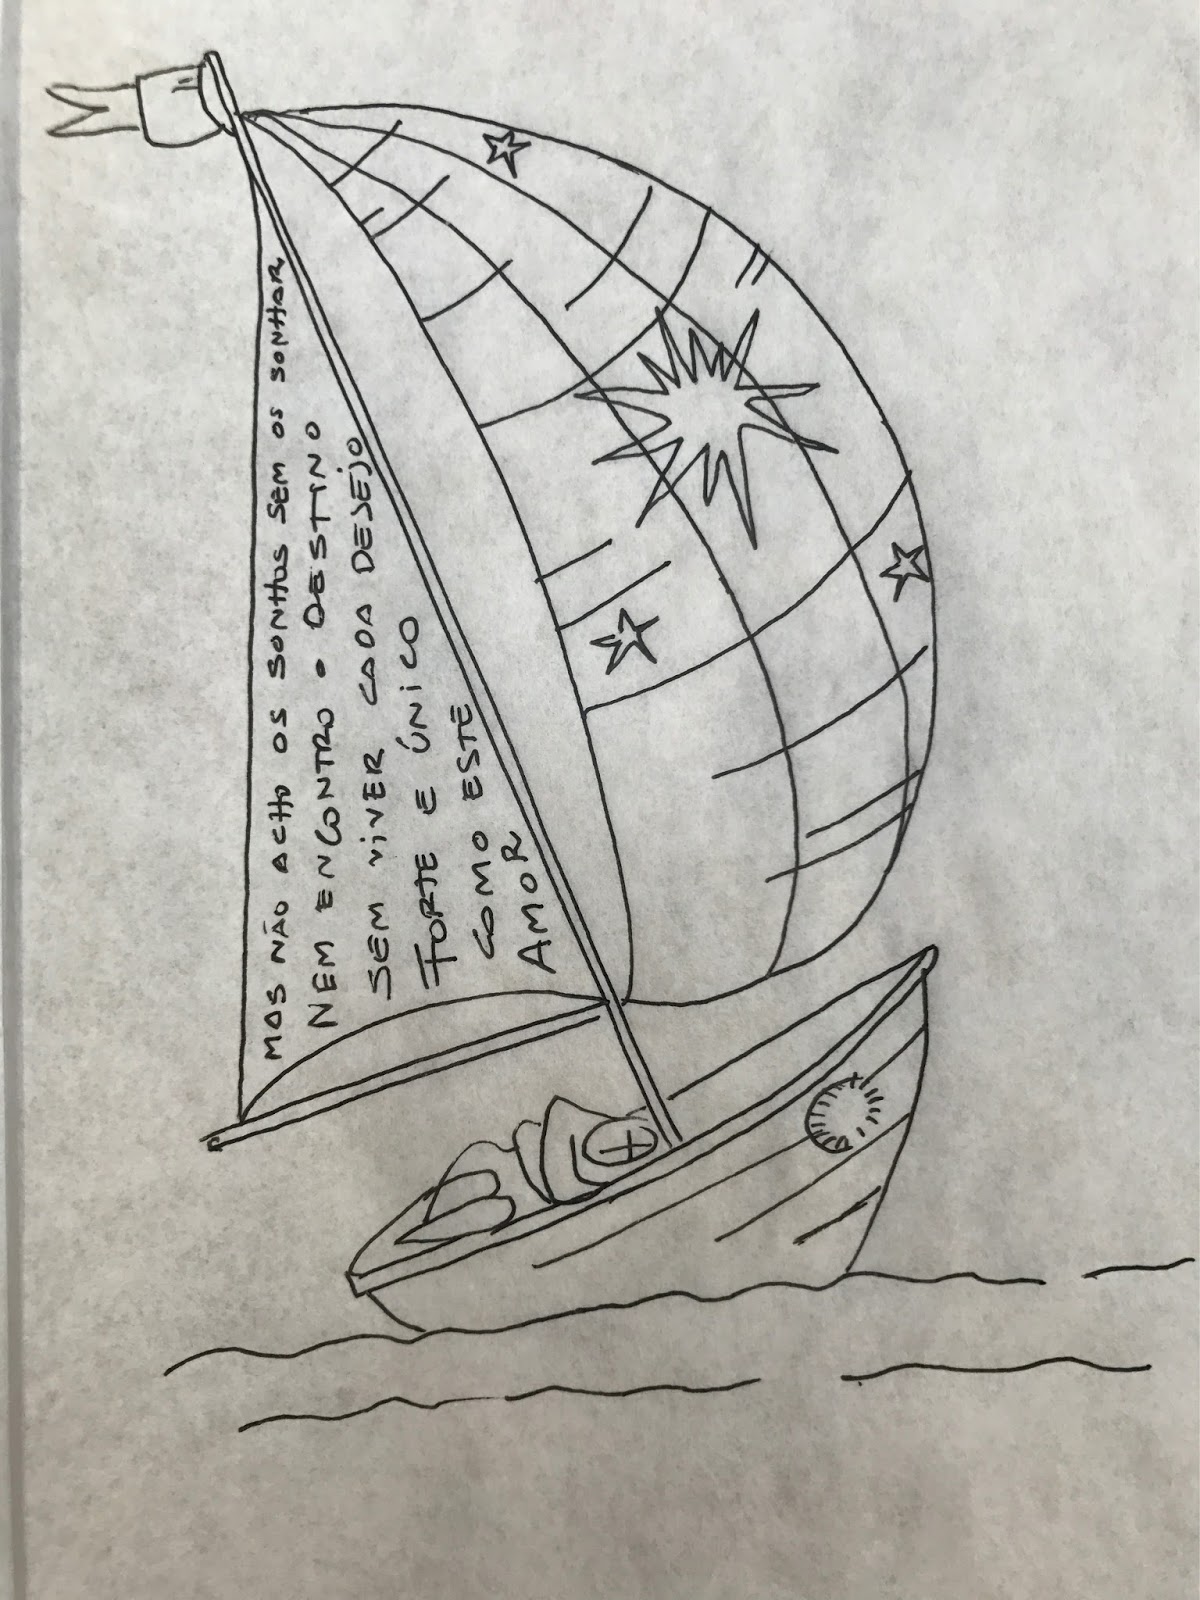 MAS NÃO ACHO OS SONHOS SEM OS SONHAR,
NEM ENCONTRO O DESTINO
SEM VIVER CADA DESEJO
FORTE E ÚNICO
COMO ESTE
AMOR